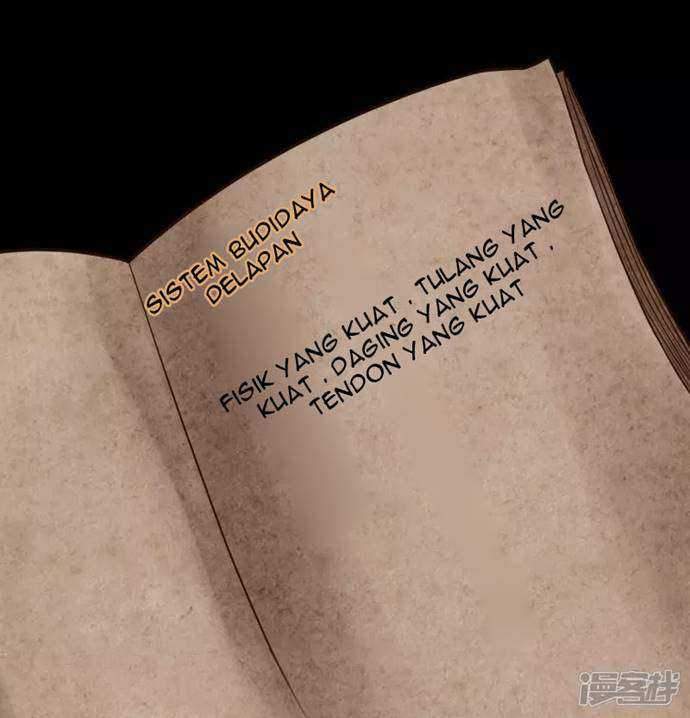 SISTEM BUDIDAYA
DELAPAN
FISIK YANG KUAT , TULANG YANG
KUAT , DAGING YANG KUAT ,
TENDON YANG KUAT
漫客栈